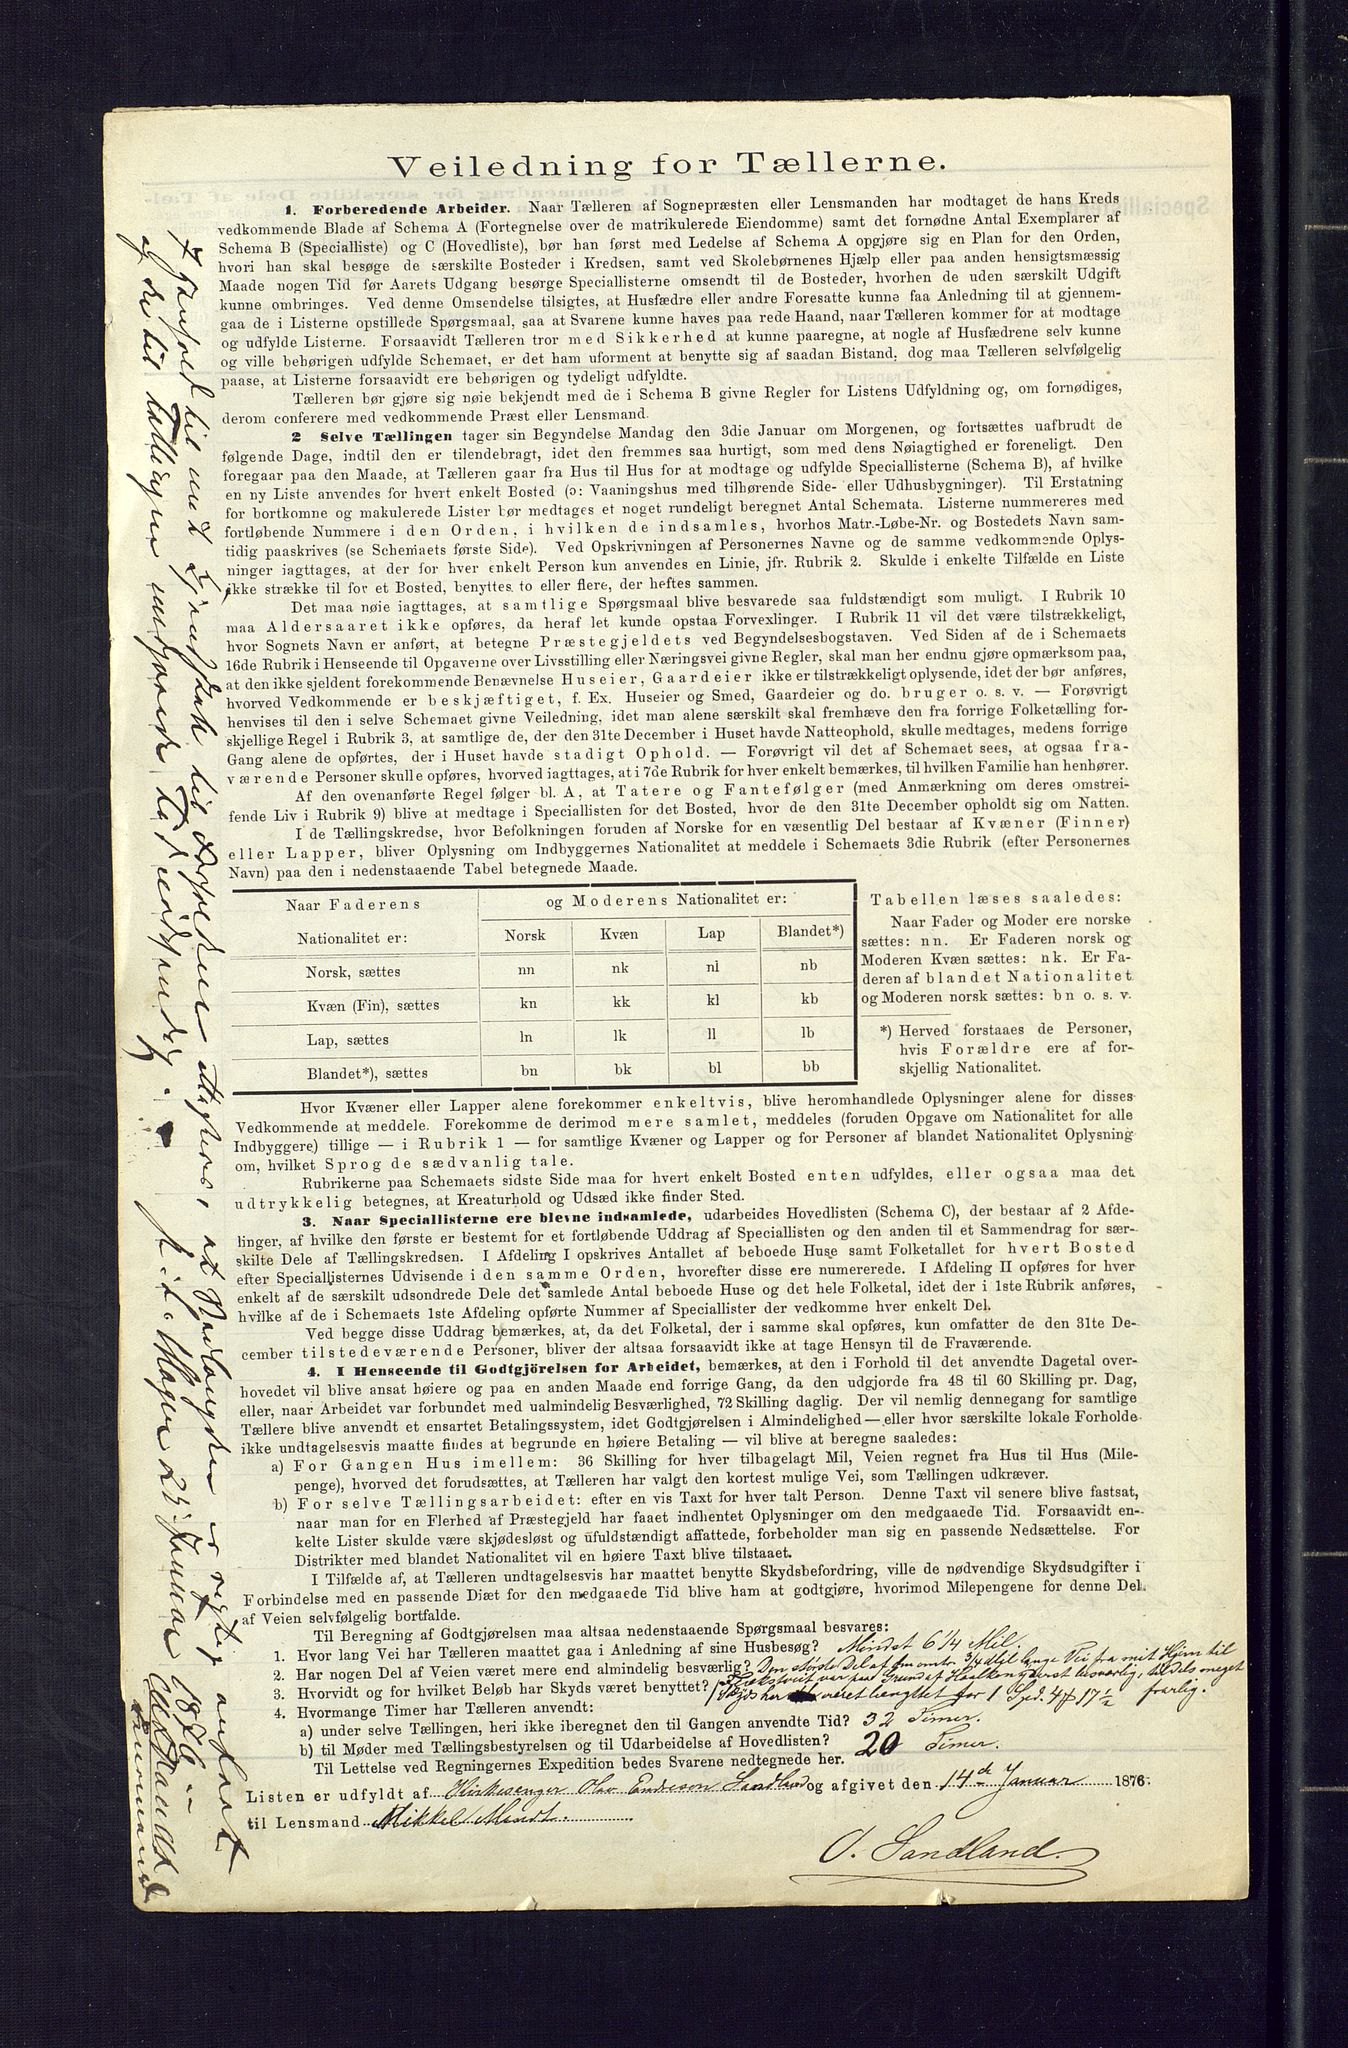 Veiledning for Tællerne.
1. Forberedende Arbeider. Naar Tælleren af Sognepræsten eller Lensmanden har modtaget de hans Kreds
vedkommende Blade af Schema A (Fortegnelse over de matrikulerede Eiendomme) samt det fornødne Antal Exemplarer af
Schema B (Specialliste) og C (Hovedliste), bør han først med Ledelse af Schema A opgjøre sig en Plan for den Orden,
hvori han skal besøge de særskilte Bosteder i Kredsen, samt ved Skolebørnenes Hjælp eller paa anden hensigtsmæssig
Maade nogen Tid før Aarets Udgang besørge Speciallisterne omsendt til de Bosteder, hvorhen de uden særskilt Udgift
kunne ombringes. Ved denne Omsendelse tilsigtes, at Husfædre eller andre Foresatte kunne faa Anledning til at gjennem-
gaa de i Listerne opstillede Spørgsmaal, saa at Svarene kunne haves paa rede Haand, naar Tælleren kommer for at modtage
og udfylde Listerne. Forsaavidt Tælleren tror med Sikkerhed at kunne paaregne, at nogle af Husfædrene selv kunne
og ville behørigen udfylde Schemaet, er det ham uforment at benytte sig af saadan Bistand, dog maa Tælleren selvfølgelig
paase, at Listerne forsaavidt ere behørigen og tydeligt udfyldte.
Tælleren bør gjøre sig nøie bekjendt med de i Schema B givne Regler for Listens Udfyldning og, om fornødiges,
derom conferere med vedkommende Præst eller Lensmand.
2 Selve Tællingen tager sin Begyndelse Mandag den 3die Januar om Morgenen, og fortsættes uafbrudt de
følgende Dage, indtil den er tilendebragt, idet den fremmes saa hurtigt, som med dens Nøiagtighed er foreneligt. Den
foregaar paa den Maade, at Tælleren gaar fra Hus til Hus for at modtage og udfylde Speciallisterne (Schema B), af hvilke
en ny Liste anvendes for hvert enkelt Bosted (ɔ: Vaaningshus med tilhørende Side- eller Udhusbygninger). Til Erstatning
for bortkomne og makulerede Lister bør medtages et noget rundeligt beregnet Antal Schemata. Listerne nummereres med
fortløbende Nummere i den Orden, i hvilken de indsamles, hvorhos Matr.-Løbe-Nr. og Bostedets Navn sam-
tidig paaskrives (se Schemaets første Side). Ved Opskrivningen af Personernes Navne og de samme vedkommende Oplys-
ninger iagttages, at der for hver enkelt Person kun anvendes en Linie, jfr. Rubrik 2. Skulde i enkelte Tilfælde en Liste
ikke strække til for et Bosted, benyttes to eller flere, der heftes sammen.
Det maa nøie iagttages, at samtlige Spørgsmaal blive besvarede saa fuldstændigt som muligt. I Rubrik 10
maa Aldersaaret ikke opføres, da heraf let kunde opstaa Forvexlinger. I Rubrik 11 vil det være tilstrækkeligt,
hvor Sognets Navn er anført, at betegne Præstegjeldets ved Begyndelsesbogstaven. Ved Siden af de i Schemaets
16de Rubrik i Henseende til Opgaverne over Livsstilling eller Næringsvei givne Regler, skal man her endnu gjøre opmærksom paa,
at den ikke sjeldent forekommende Benævnelse Huseier, Gaardeier ikke er tilstrækkeligt oplysende, idet der bør anføres,
hvorved Vedkommende er beskjæftiget, f. Ex. Huseier og Smed, Gaardeier og do. bruger o. s. v. — Forøvrigt
henvises til den i selve Schemaet givne Veiledning, idet man alene særskilt skal fremhæve den fra forrige Folketælling for-
skjellige Regel i Rubrik 3, at samtlige de, der den 31te December i Huset havde Natteophold, skulle medtages, medens forrige
Gang alene de opførtes, der i Huset havde stadigt Ophold. — Forøvrigt vil det af Schemaet sees, at ogsaa fra-
værende Personer skulle opføres, hvorved iagttages, at i 7de Rubrik for hver enkelt bemærkes, til hvilken Familie han henhører.
Af den ovenanførte Regel følger bl. A, at Tatere og Fantefølger (med Anmærkning om deres omstrei-
fende Liv i Rubrik 9) blive at medtage i Speciallisten for det Bosted, hvor de den 31te December opholdt sig om Natten.
I de Tællingskredse, hvor Befolkningen foruden af Norske for en væsentlig Del bestaar af Kvæner (Finner)
eller Lapper, bliver Oplysning om Indbyggernes Nationalitet at meddele i Schemaets 3die Rubrik (efter Personernes
Navn) paa den i nedenstaaende Tabel betegnede Maade.
Naar Faderens og Moderens Nationalitet er:
Nationalitet er: Norsk Kvæn Lap Blandet*)
Norsk, sættes nn nk nl nb
Kvæn (Fin), sættes kn kk kl kb
Lap, sættes ln lk ll lb
Blandet*), sættes bn bk bl bb
Tabellen læses saaledes:
Naar Fader og Moder ere norske
sættes: nn. Er Faderen norsk og
Moderen Kvæn sættes: nk. Er Fa-
deren af blandet Nationalitet
og Moderen norsk sættes: bn o. s. v.
*) Herved forstaaes de Personer,
hvis Forældre ere af for-
skjellig Nationalitet.
Hvor Kvæner eller Lapper alene forekommer enkeltvis, blive heromhandlede Oplysninger alene for disses
Vedkommende at meddele. Forekomme de derimod mere samlet, meddeles (foruden Opgave om Nationalitet for alle
Indbyggere) tillige — i Rubrik 1 — for samtlige Kvæner og Lapper og for Personer af blandet Nationalitet Oplysning
om, hvilket Sprog de sædvanlig tale.
Rubrikerne paa Schemaets sidste Side maa for hvert enkelt Bosted enten udfyldes, eller ogsaa maa det
udtrykkelig betegnes, at Kreaturhold og Udsæd ikke finder Sted.
3. Naar Speciallisterne ere blevne indsamlede, udarbeides Hovedlisten (Schema C), der bestaar af 2 Afde-
linger, af hvilke den første er bestemt for et fortløbende Uddrag af Speciallisten og den anden til et Sammendrag for sær-
skilte Dele af Tællingskredsen. I Afdeling I opskrives Antallet af beboede Huse samt Folketallet for hvert Bosted
efter Speciallisternes Udvisende i den samme Orden, hvorefter disse ere numererede. I Afdeling II opføres for hver
enkelt af de særskilt udsondrede Dele det samlede Antal beboede Huse og det hele Folketal, idet der i 1ste Rubrik anføres,
hvilke af de i Schemaets 1ste Afdeling opførte Nummer af Speciallister der vedkomme hver enkelt Del.
Ved begge disse Uddrag bemærkes, at, da det Folketal, der i samme skal opføres, kun omfatter de den 31te De-
cember tilstedeværende Personer, bliver der altsaa forsaavidt ikke at tage Hensyn til de Fraværende.
4. I Henseende til Godtgjörelsen for Arbeidet, bemærkes, at den i Forhold til det anvendte Dagetal over-
hovedet vil blive ansat høiere og paa en anden Maade end forrige Gang, da den udgjorde fra 48 til 60 Skilling pr. Dag,
eller, naar Arbeidet var forbundet med ualmindelig Besværlighed, 72 Skilling daglig. Der vil nemlig dennegang for samtlige
Tællere blive anvendt et ensartet Betalingssystem, idet Godtgjørelsen i Almindelighed — eller hvor særskilte lokale Forholde
ikke undtagelsesvis maatte findes at begrunde en høiere Betaling — vil blive at beregne saaledes:
a) For Gangen Hus imellem: 36 Skilling for hver tilbagelagt Mil, Veien regnet fra Hus til Hus (Mile-
penge), hvorved det forudsættes, at Tælleren har valgt den kortest mulige Vei, som Tællingen udkræver.
b) For selve Tællingsarbeidet: efter en vis Taxt for hver talt Person. Denne Taxt vil senere blive fastsat,
naar man for en Flerhed af Præstegjeld har faaet indhentet Oplysninger om den medgaaede Tid. Forsaavidt en-
kelte Lister skulde være skjødesløst og ufuldstændigt affattede, forbeholder man sig en passende Nedsættelse. For
Distrikter med blandet Nationalitet vil en høiere Taxt blive tilstaaet.
I Tilfælde af, at Tælleren undtagelsesvis har maattet benytte Skydsbefordring, ville de nødvendige Skydsudgifter i
Forbindelse med en passende Diæt for den medgaaede Tid blive ham at godtgjøre, hvorimod Milepengene for denne Del
af Veien selvfølgelig bortfalde.
Til Beregning af Godtgjørelsen maa altsaa nedenstaaende Spørgsmaal besvares:
1. Hvor lang Vei har Tælleren maattet gaa i Anledning af sine Husbesøg? Mindst 6 1/4 Mil.
2. Har nogen Del af Veien været mere end almindelig besværlig? Den største Del af den omtr 3/4 Mil lange Vei fra mit Hjem til
Flekstveit var paa Grund af Haalken yderst besværlig, tildels meget farlig.
3. Hvorvidt og for hvilket Beløb har Skyds været benyttet? Skyds har været benyttet for 1 Spd. 4 ₰ 17 1/2
4. Hvormange Timer har Tælleren anvendt:
a) under selve Tællingen, heri ikke iberegnet den til Gangen anvendte Tid? 32 Timer.
b) til Møder med Tællingsbestyrelsen og til Udarbeidelse af Hovedlisten? 20 Timer.
Til Lettelse ved Regningernes Expedition bedes Svarene nedtegnede her.
Listen er udfyldt af Kirkesanger Olav Endreson Sandland og afgivet den 14de Januar 1876.
til Lensmand Mikkel Mandt.
O. Sandland.
I Henhold til mit Kjendskab til Distriktet attesteres, at Veilængden er rigtig anført
og den til Tællingen medgaaede Tid nødvendig.
25 Januar 1876.
Mandt
Lensmand